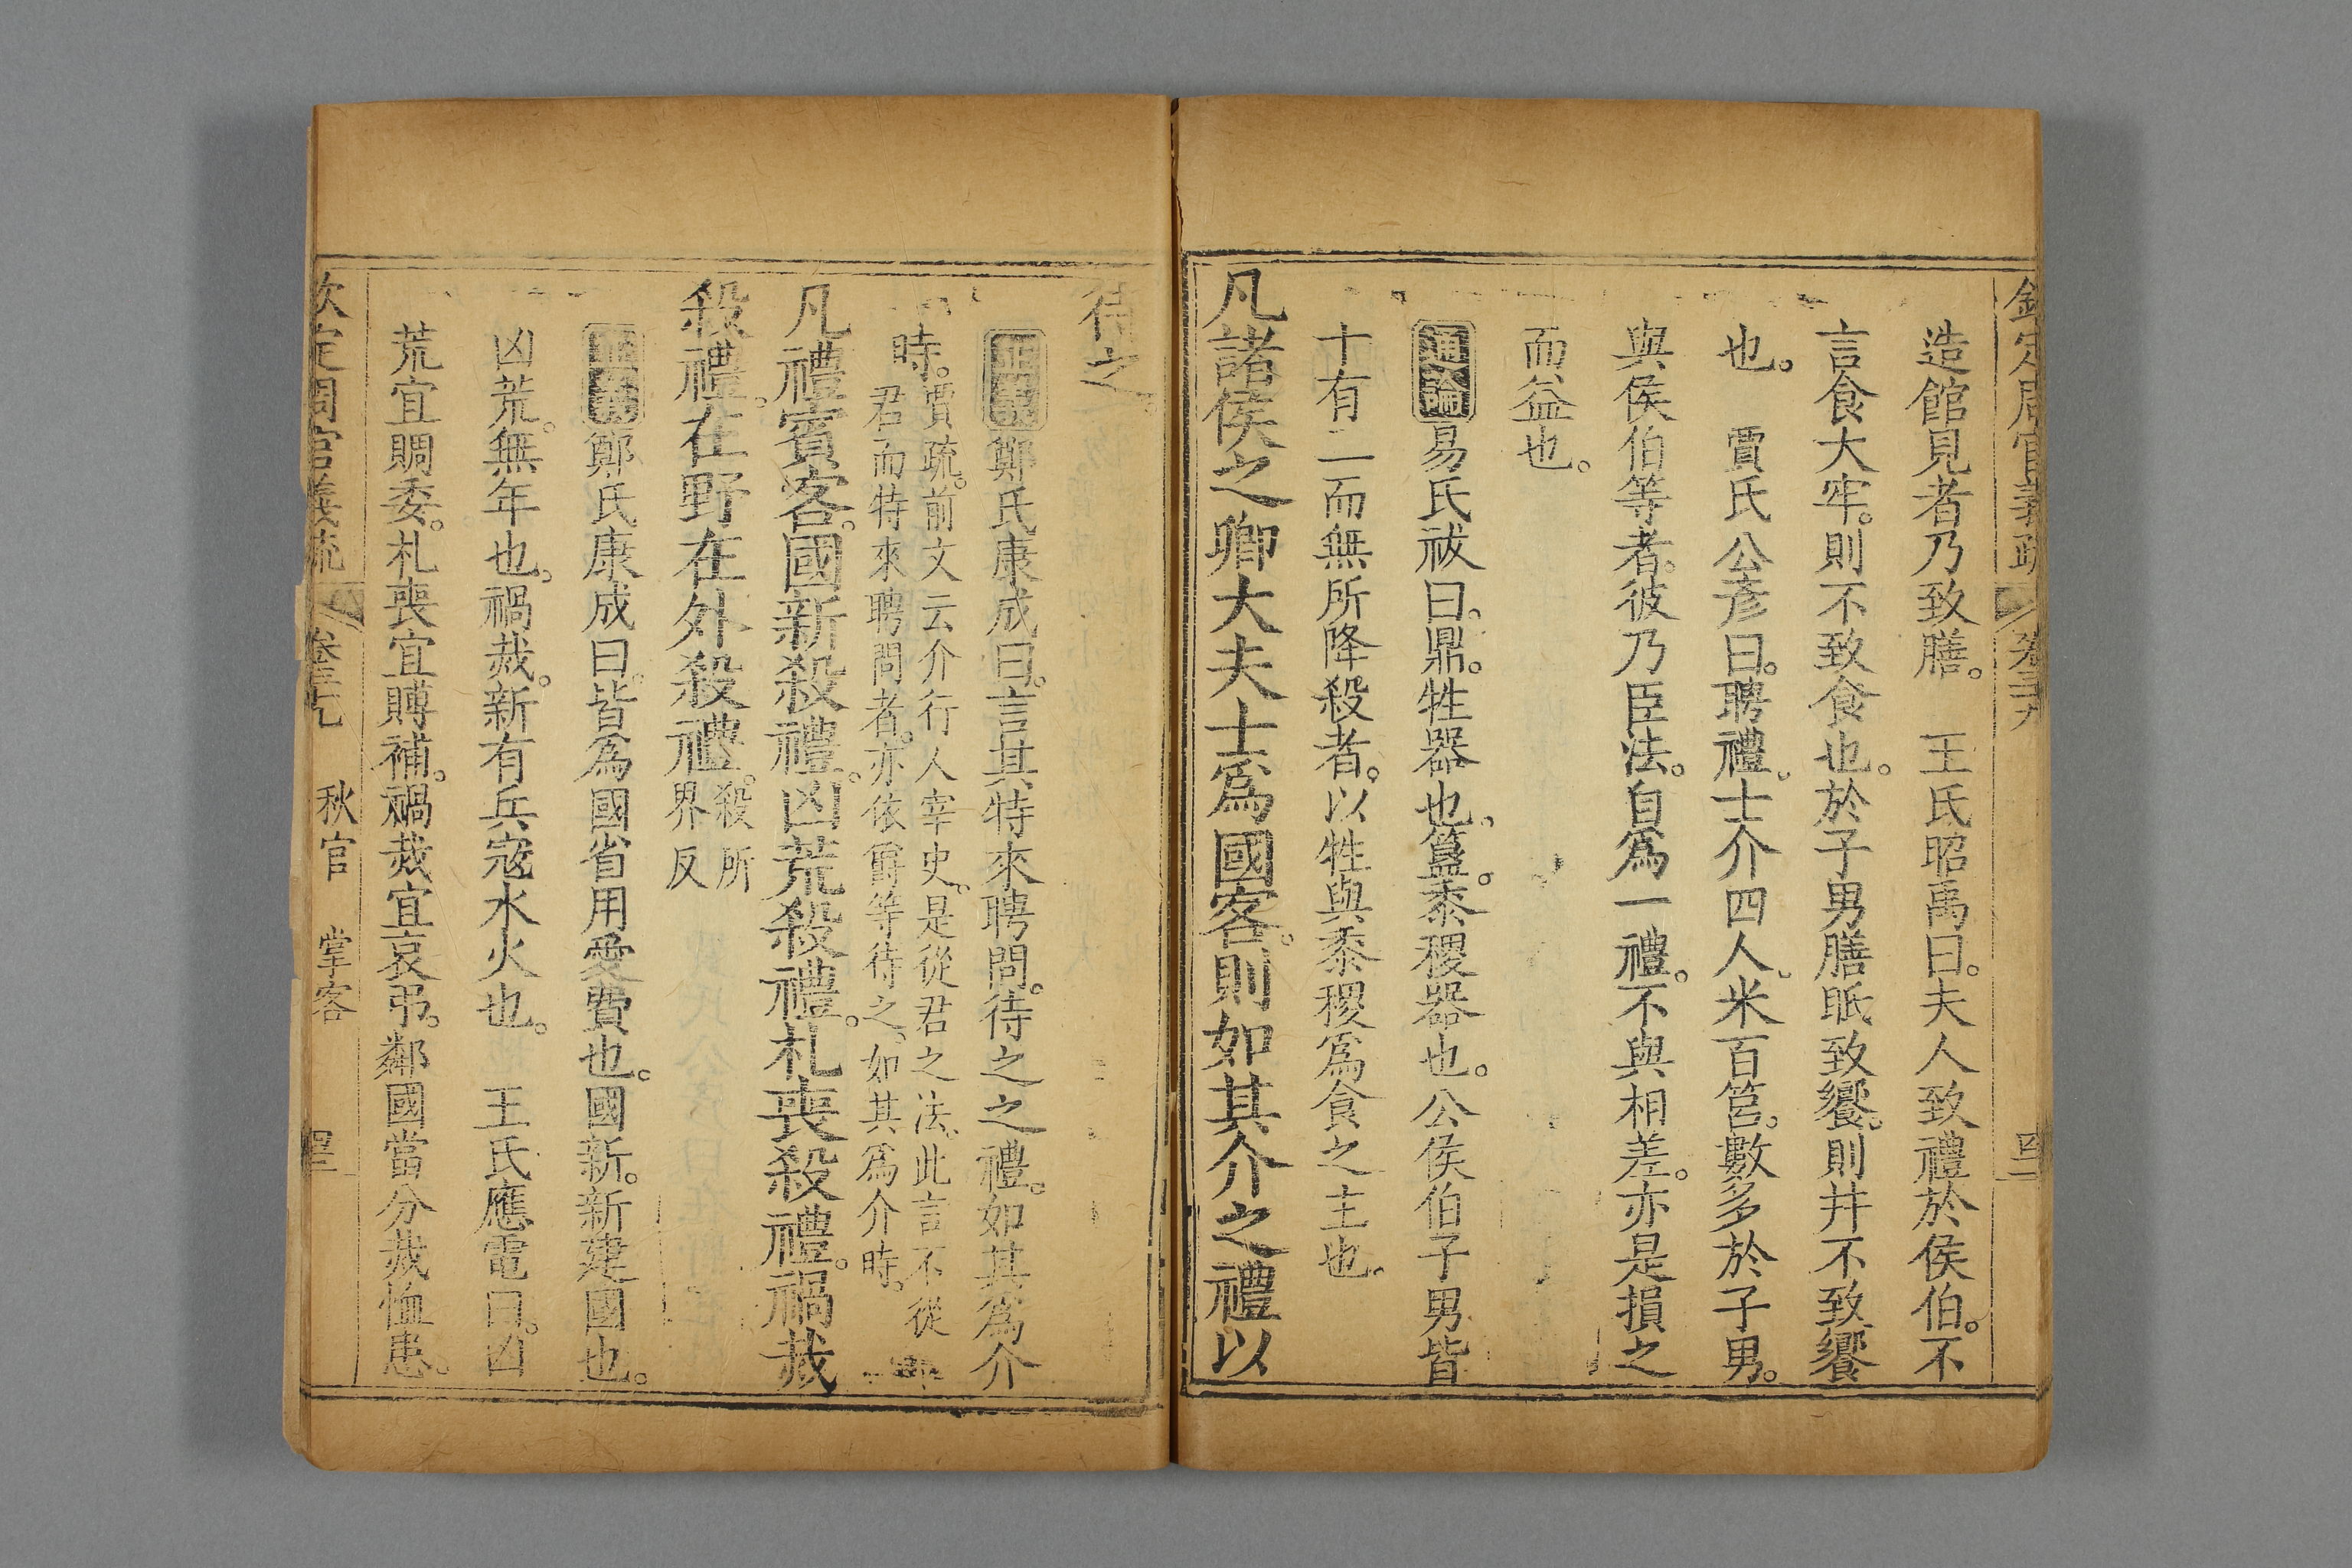 欽定周官義疏 卷三十九
造館見者乃致膳。 王氏昭禹曰。夫人致禮於侯伯。不
言食大牢。則不致食也。於子男膳眡致饗。則幷不致饗
也。 賈氏公彥曰。聘禮。士介四人。米百筥。數多於子男。
與侯伯等者。彼乃臣法。自爲一禮。不與相差。亦是損之
而益也。
通論易氏祓曰。鼎。牲器也。簋。黍稷器也。公侯伯子男皆
十有二而無所降殺者。以牲與黍稷爲食之主也。
凡諸侯之卿大夫士爲國客。則如其介之禮以
待之。
正義鄭氏康成曰。言其特來聘問。待之之禮。如其爲介
時。賈疏。前文云介行人宰史。是從君之法。此言不從
君而特來聘問者。亦依爵等待之。如其爲介時。
凡禮賓客。國新殺禮。凶荒殺禮。札喪殺禮。禍烖
殺禮。在野在外殺禮。殺所
界反
正義鄭氏康成曰。皆爲國省用愛費也。國新。新建國也。
凶荒。無年也。禍烖。新有兵寇水火也。 王氏應電曰。凶
荒宜賙委。札喪宜賻補。禍烖宜哀弔。鄰國當分烖恤患。
欽定周官義疏 秋官 掌客